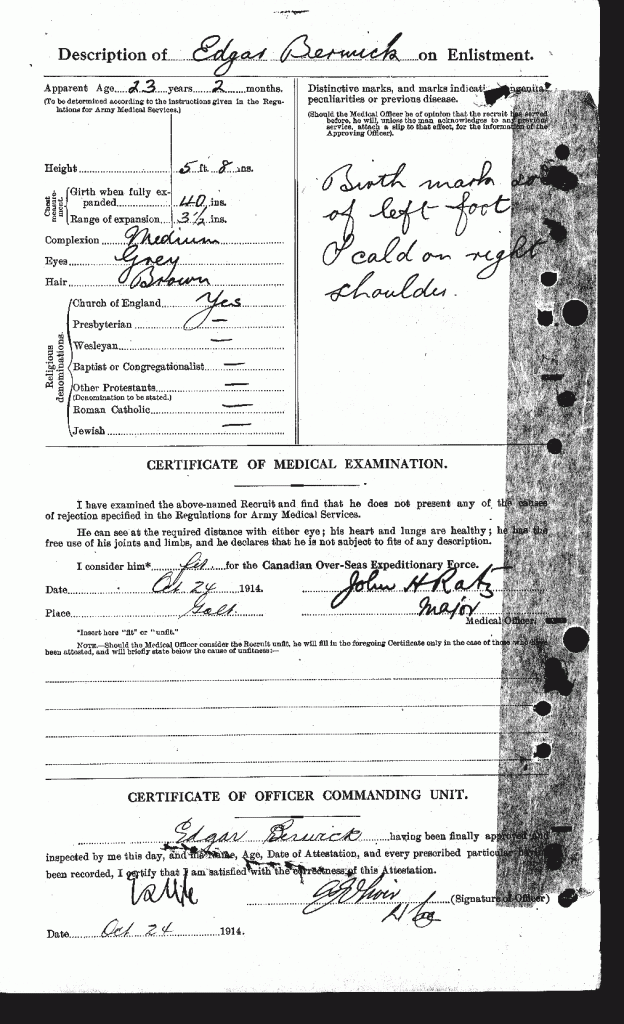 Description of Edgar Berwick on Enlistment.
Apparent Age 23 years 2 months.
(To be determined according to the instructions given in the Regu-
lations for Army Medical Services.)
Height 5 ft. 8 ins.
Chest
measure-
ment.
Girth when fully ex-
panded 40 ins.
Range of expansion 3½ ins.
Complexion Medium
Eyes Grey
Hair Brown
Religious
denominations.
Church of England Yes
Presbyterian —
Wesleyan —
Baptist or Congregationalist —
Other Protestants —
(Denomination to be stated.)
Roman Catholic —
Jewish —
Distinctive marks, and marks indicati congenital
peculiarities or previous disease.
(Should the Medical Officer be of opinion that the recruit has served
before, he will, unless the man acknowledges to any previous
service, attach a slip to that effect, for the information of the
Approving Officer).
Birth mark
of left foot
I cald on right
shoulder.
CERTIFICATE OF MEDICAL EXAMINATION.
I have examined the above-named Recruit and find that he does not present any of the causes
of rejection specified in the Regulations for Army Medical Services.
He can see at the required distance with either eye; his heart and lungs are healthy; he has the
free use of his joints and limbs, and he declares that he is not subject to fits of any description.
I consider him* fit for the Canadian Over-Seas Expeditionary Force.
Date Oct 24 1914.
John H Katz
Place Galt
Major
Medical Officer.
*Insert here "fit" or "unfit."
NOTE.—Should the Medical Officer consider the Recruit unfit, he will fill in the foregoing Certificate only in the case of those who have
been attested, and will briefly state below the cause of unfitness:—
CERTIFICATE OF OFFICER COMMANDING UNIT.
Edgar Berwick having been finally approved and
inspected by me this day, and his Name, Age, Date of Attestation, and every prescribed particular having
been recorded, I certify that I am satisfied with the correctness of this Attestation.
(Signature of Officer)
Date Oct 24 1914.